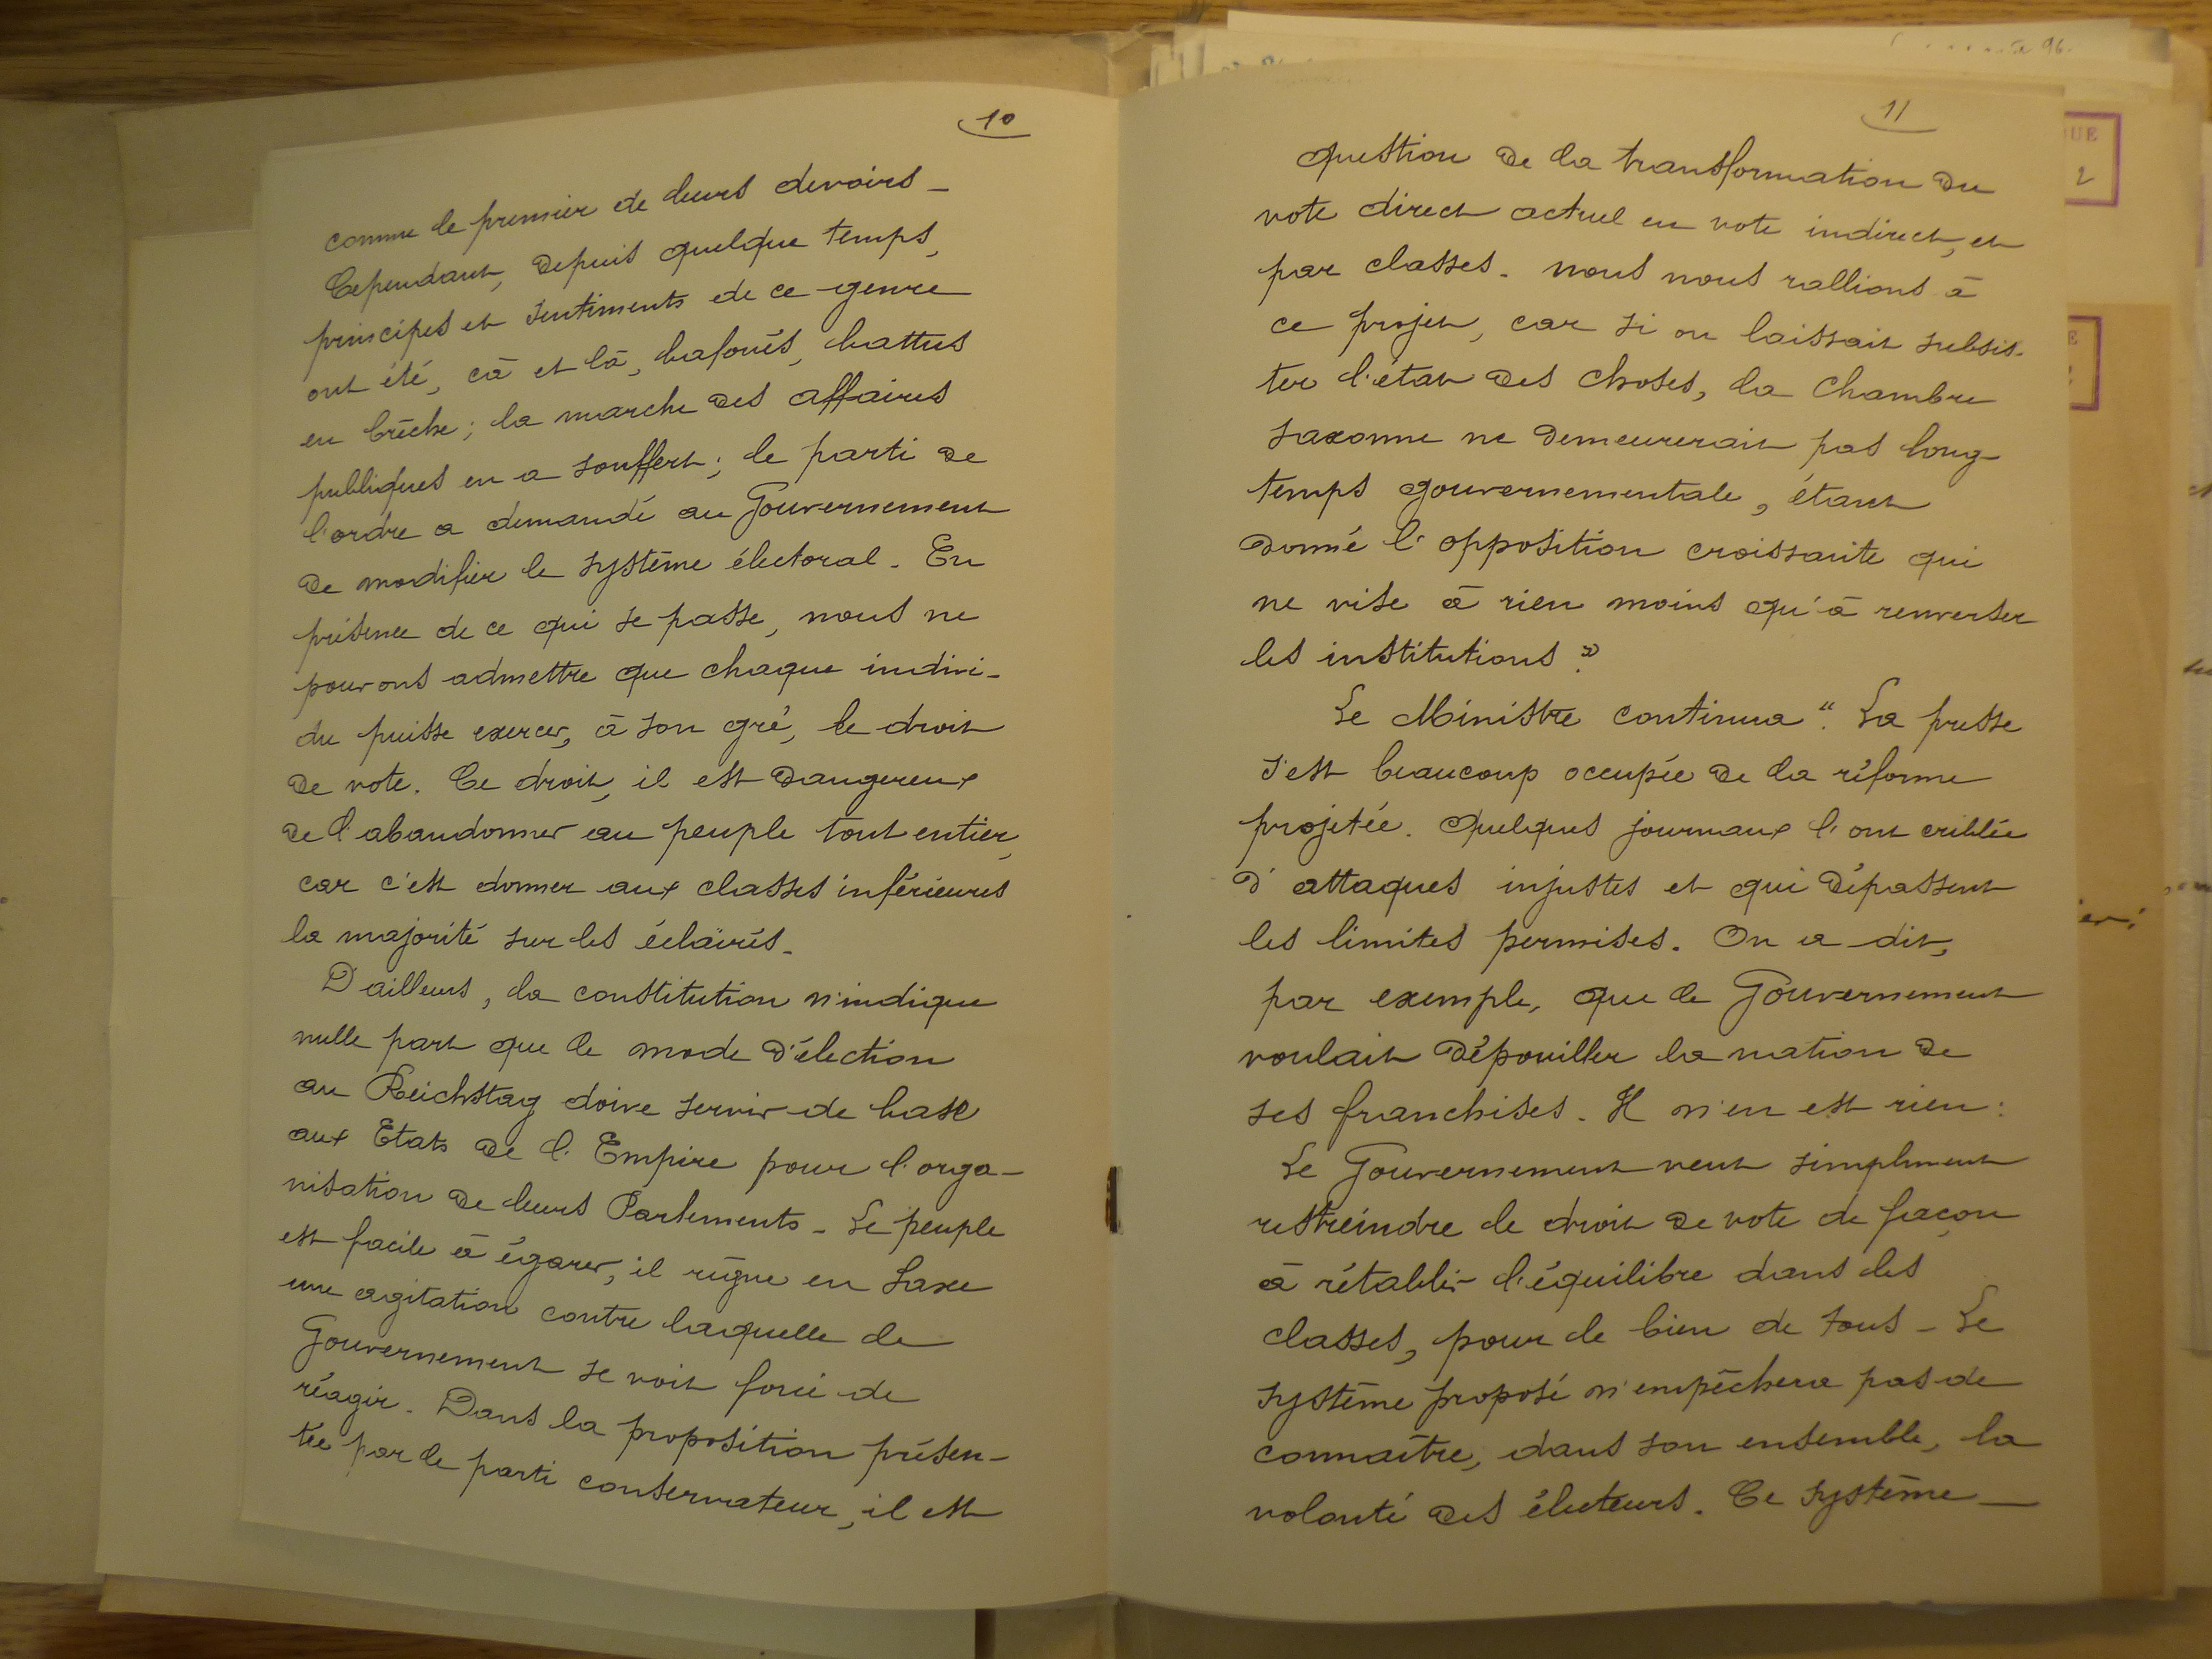 10
comme le premier de leurs devoirs _
Cependant, depuis quelque temps,
principes et sentiments de ce genre
ont été, cà et là, bafoués, battus
en brèche ; la marche des affaires
publiques en a souffert ; le parti de
l'ordre a demandé au Gouvernement
de modifier le système électoral _ En
présence de ce qui se passe, nous ne
pouvons admettre que chaque indivi-
du puisse exercer, à son gré, le droit
de vote. Ce droit, il est dangereux
de l'abandonner au peuple tout entier,
car c'est donner aux classes inférieures
la majorité sur les éclairés _
D'ailleurs, la constitution n'indique
nulle part que le mode d'élection
au Reichstag doive servir de base
aux Etats de l'Empire pour l'orga-
nisation de leurs Parlements _ Le peuple
est facile à égarer, il règne en Saxe
une agitation contre laquelle le
Gouvernement se voit forcé de
réagir _ Dans la proposition présen-
tée par le parti conservateur, il est
11
question de la transformation du
vote direct actuel en vote indirect, et
par classes _ nous nous rallions à
ce projet, car si on laissait subsis-
ter l'état des choses, la Chambre
saxonne ne demeurerait pas long-
temps gouvernementale, étant
donné l'opposition croissante qui
ne vise à rien moins qu'à renverser
les institutions."
Le Ministre continua : "La presse
s'est beaucoup occupée de la réforme
projetée. Quelques journaux l'ont criblée
d'attaques injustes et qui dépassent
les limites permises. On a dit,
par exemple, que le Gouvernement
voulait dépouiller la nation de
ses franchises. Il n'en est rien :
Le Gouvernement veut simplement
restreindre le droit de vote de façon
à rétablir l'équilibre dans les
classes, pour le bien de tous _ Le
système proposé n'empêchera pas de
connaître, dans son ensemble, la
volonté des électeurs. Ce système _